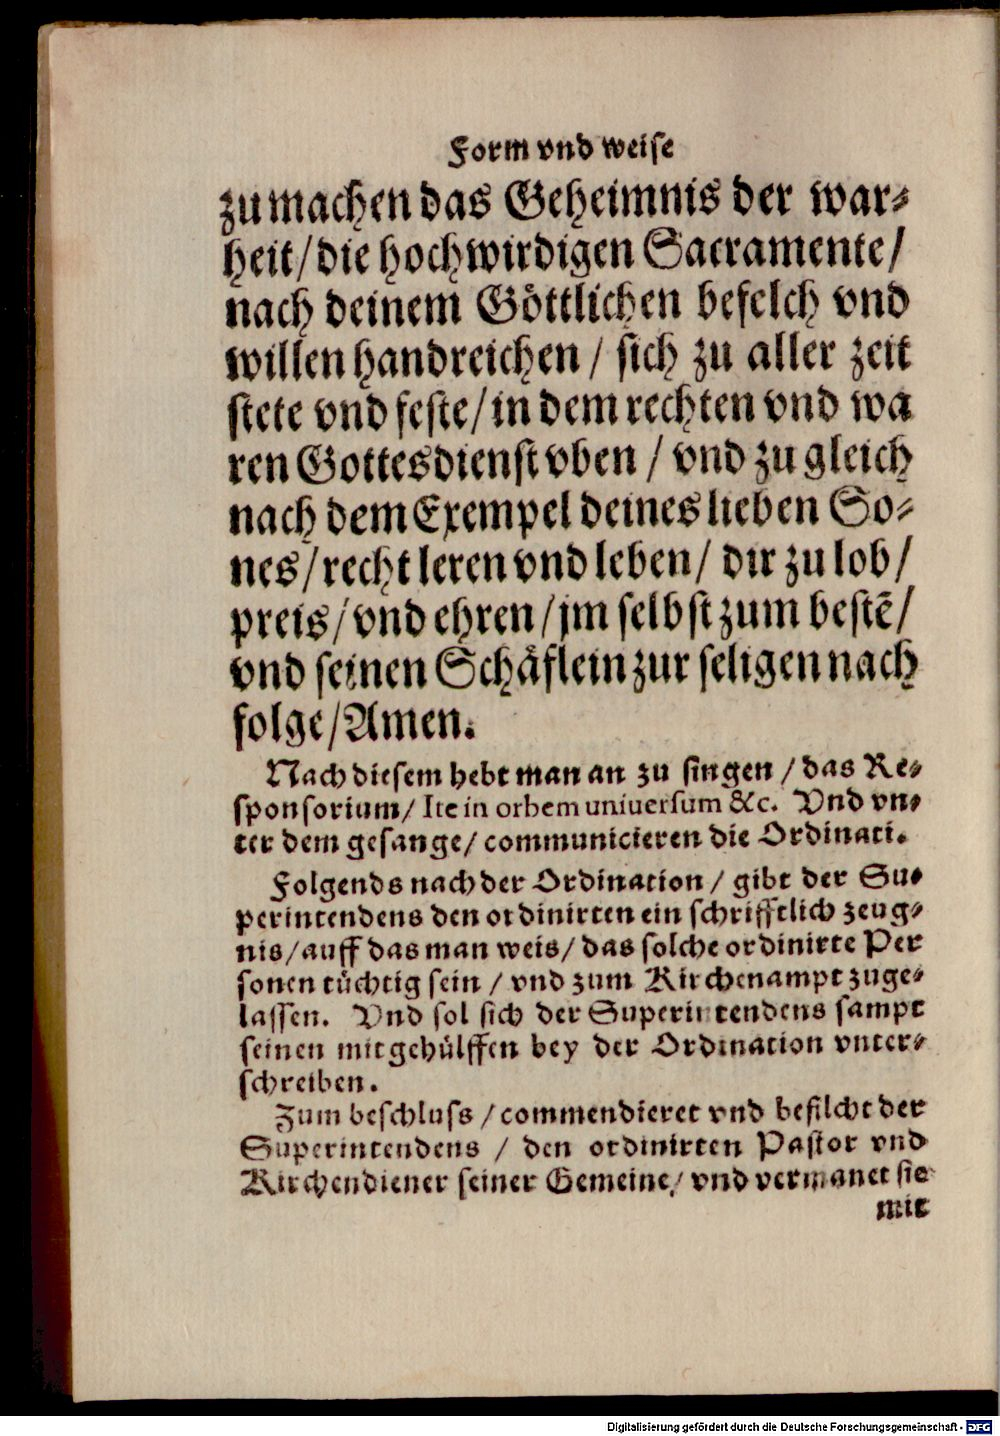 Form vnd weise
zu machen das Geheimnis der war-
heit/die hochwirdigen Sacramente/
nach deinem Göttlichen befelch vnd
willen handreichen / sich zu aller zeit
stete vnd feste/in dem rechten vnd wa
ren Gottesdienst vben / vnd zu gleich
nach dem Exempel deines lieben So-
nes/recht leren vnd leben/ dir zu lob/
preis/vnd ehren/jm selbst zum bestē/
vnd seinen Schäflein zur seligen nach
folge/Amen.
Nach diesem hebt man an zu singen /das Re-
sponsorium/ Ite in orbem uniuersum &c. Vnd vn-
ter dem gesange/ communicieren die Ordinati.
Folgends nach der Ordination / gibt der Su-
perintendens den ordinirten ein schrifftlich zeug-
nis/auff das man weis/ das solche ordinirte Per
sonen tüchtig sein / vnd zum Kirchenampt zuge-
lassen. Vnd sol sich der Superintendens sampt
seinen mitgehülffen bey der Ordination vnter-
schreiben.
Zum beschluss /commendieret vnd befilcht der
Superintendens / den ordinirten Pastor vnd
Kirchendiener seiner Gemeine/ vnd vermanet sie
mit
Digitalisierung gefördert durch die Deutsche Forschungsgemeinschaft - DFG